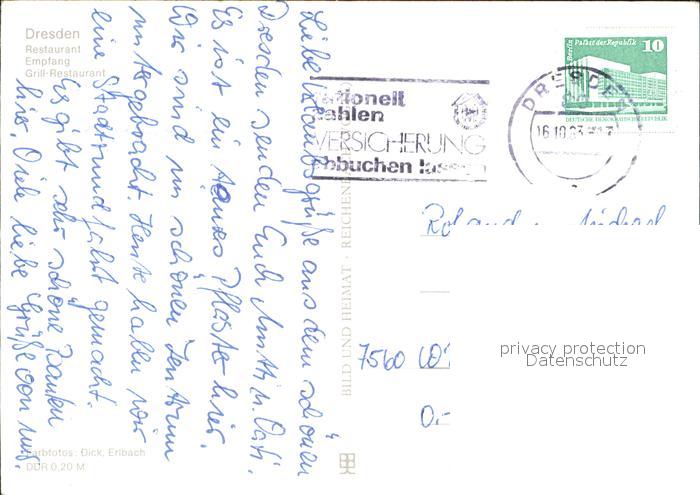 Dresden
Restaurant
Empfang
Grill-Restaurant
Liebe Urlaubsgrüße aus dem schönen
Dresden senden Euch Mutti u. Vati.
Es ist ein teures Pflaster hier.
Wir sind im schönen Zentrum
untergebracht. Heute haben wir
eine Stadtrundfahrt gemacht.
Es gibt sehr schöne Bauten
hier. Viele liebe Grüße von uns.
Farbfotos: Dick, Erlbach
DDR 0,20 M
BILD UND HEIMAT · REICHEN
rationell
zahlen
VERSICHERUNG
abbuchen lassen
DRESDEN
16.10.83
Berlin Palast der Republik
10
DEUTSCHE DEMOKRATISCHE REPUBLIK
Roland u. Michael
7560
privacy protection
Datenschutz